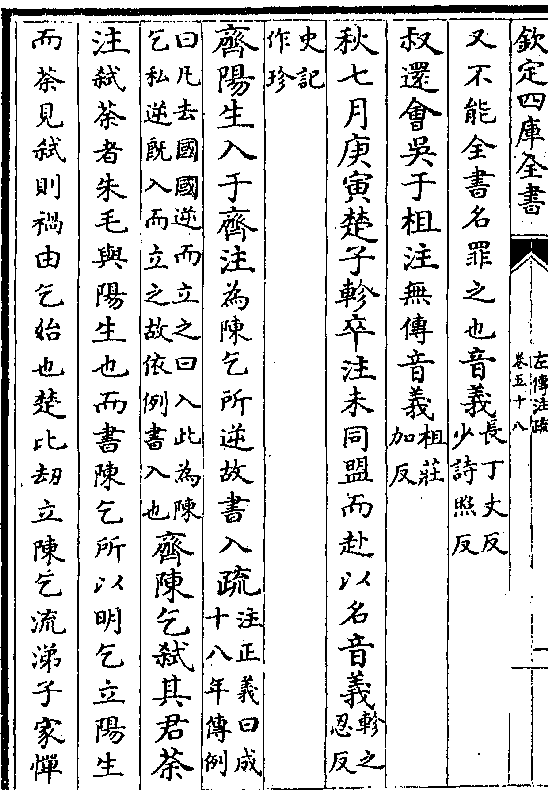 欽定四庫全書
左傳注疏
卷五十八
一
又不能全書名罪之也音義長丁丈反
少詩照反
叔還會吳于柤注無傳音義柤莊
加反
秋七月庚寅楚子軫卒注未同盟而赴以名音義軫之
忍反
史記
作珍
齊陽生入于齊注為陳乞所逆故書入疏注正義曰成
十八年傳例
曰凡去國國逆而立之曰入此為陳
乞私逆既入而立之故依例書入也齊陳乞弑其君荼
注弑荼者朱毛與陽生也而書陳乞所以明乞立陽生
而荼見弑則禍由乞始也楚比劫立陳乞流涕子家憚